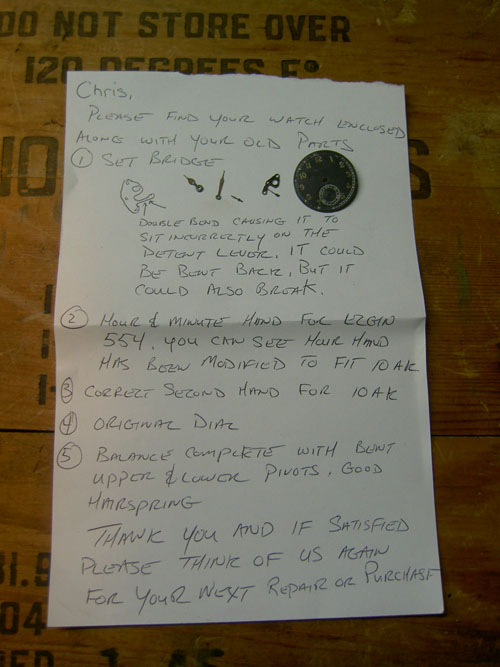 DO NOT STORE OVER
120 DEGREES F°
Chris,
PLEASE FIND YOUR WATCH ENCLOSED
ALONG WITH YOUR OLD PARTS
1 SET BRIDGE
DOUBLE BEND CAUSING IT TO
SIT INCORRECTLY ON THE
DETENT LEVER. IT COULD
BE BENT BACK, BUT IT
COULD ALSO BREAK.
2 HOUR & MINUTE HAND FOR ELGIN
554. YOU CAN SEE HOUR HAND
HAS BEEN MODIFIED TO FIT 10AK
3 CORRECT SECOND HAND FOR 10AK
4 ORIGINAL DIAL
5 BALANCE COMPLETE WITH BENT
UPPER & LOWER PIVOTS, GOOD
HAIRSPRING
THANK YOU AND IF SATISFIED
PLEASE THINK OF US AGAIN
FOR YOUR NEXT REPAIR OR PURCHASE